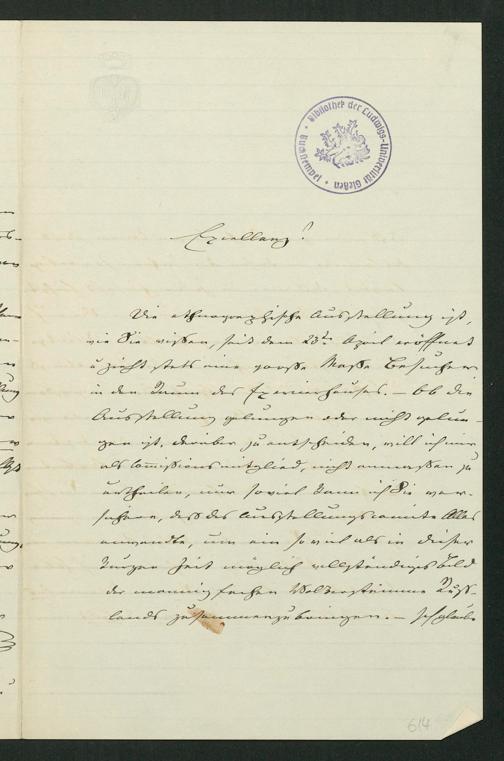 Bibliothek der Ludwigs-Universität Gießen
Excellenz!
Die ethnographische Ausstellung ist,
wie Sie wissen, seit dem 23ten April eröffnet
u zieht stets eine große Masse Besucher
in den Raum des Exercierhauses. – Ob die
Ausstellung gelungen oder nicht gelun-
gen ist, darüber zu entscheiden, will ich mir
als Commissionsmitglied, nicht anmaßen zu
urtheilen, nur soviel kann ich Sie ver-
sichern, daß das Ausstellungscomite Alles
anwandte, um ein so viel als in dieser
kurzen Zeit möglich vollständiges Bild
der mannigfachen Volksstämme Russ-
lands zusammenzubringen. – Ich glaube
614